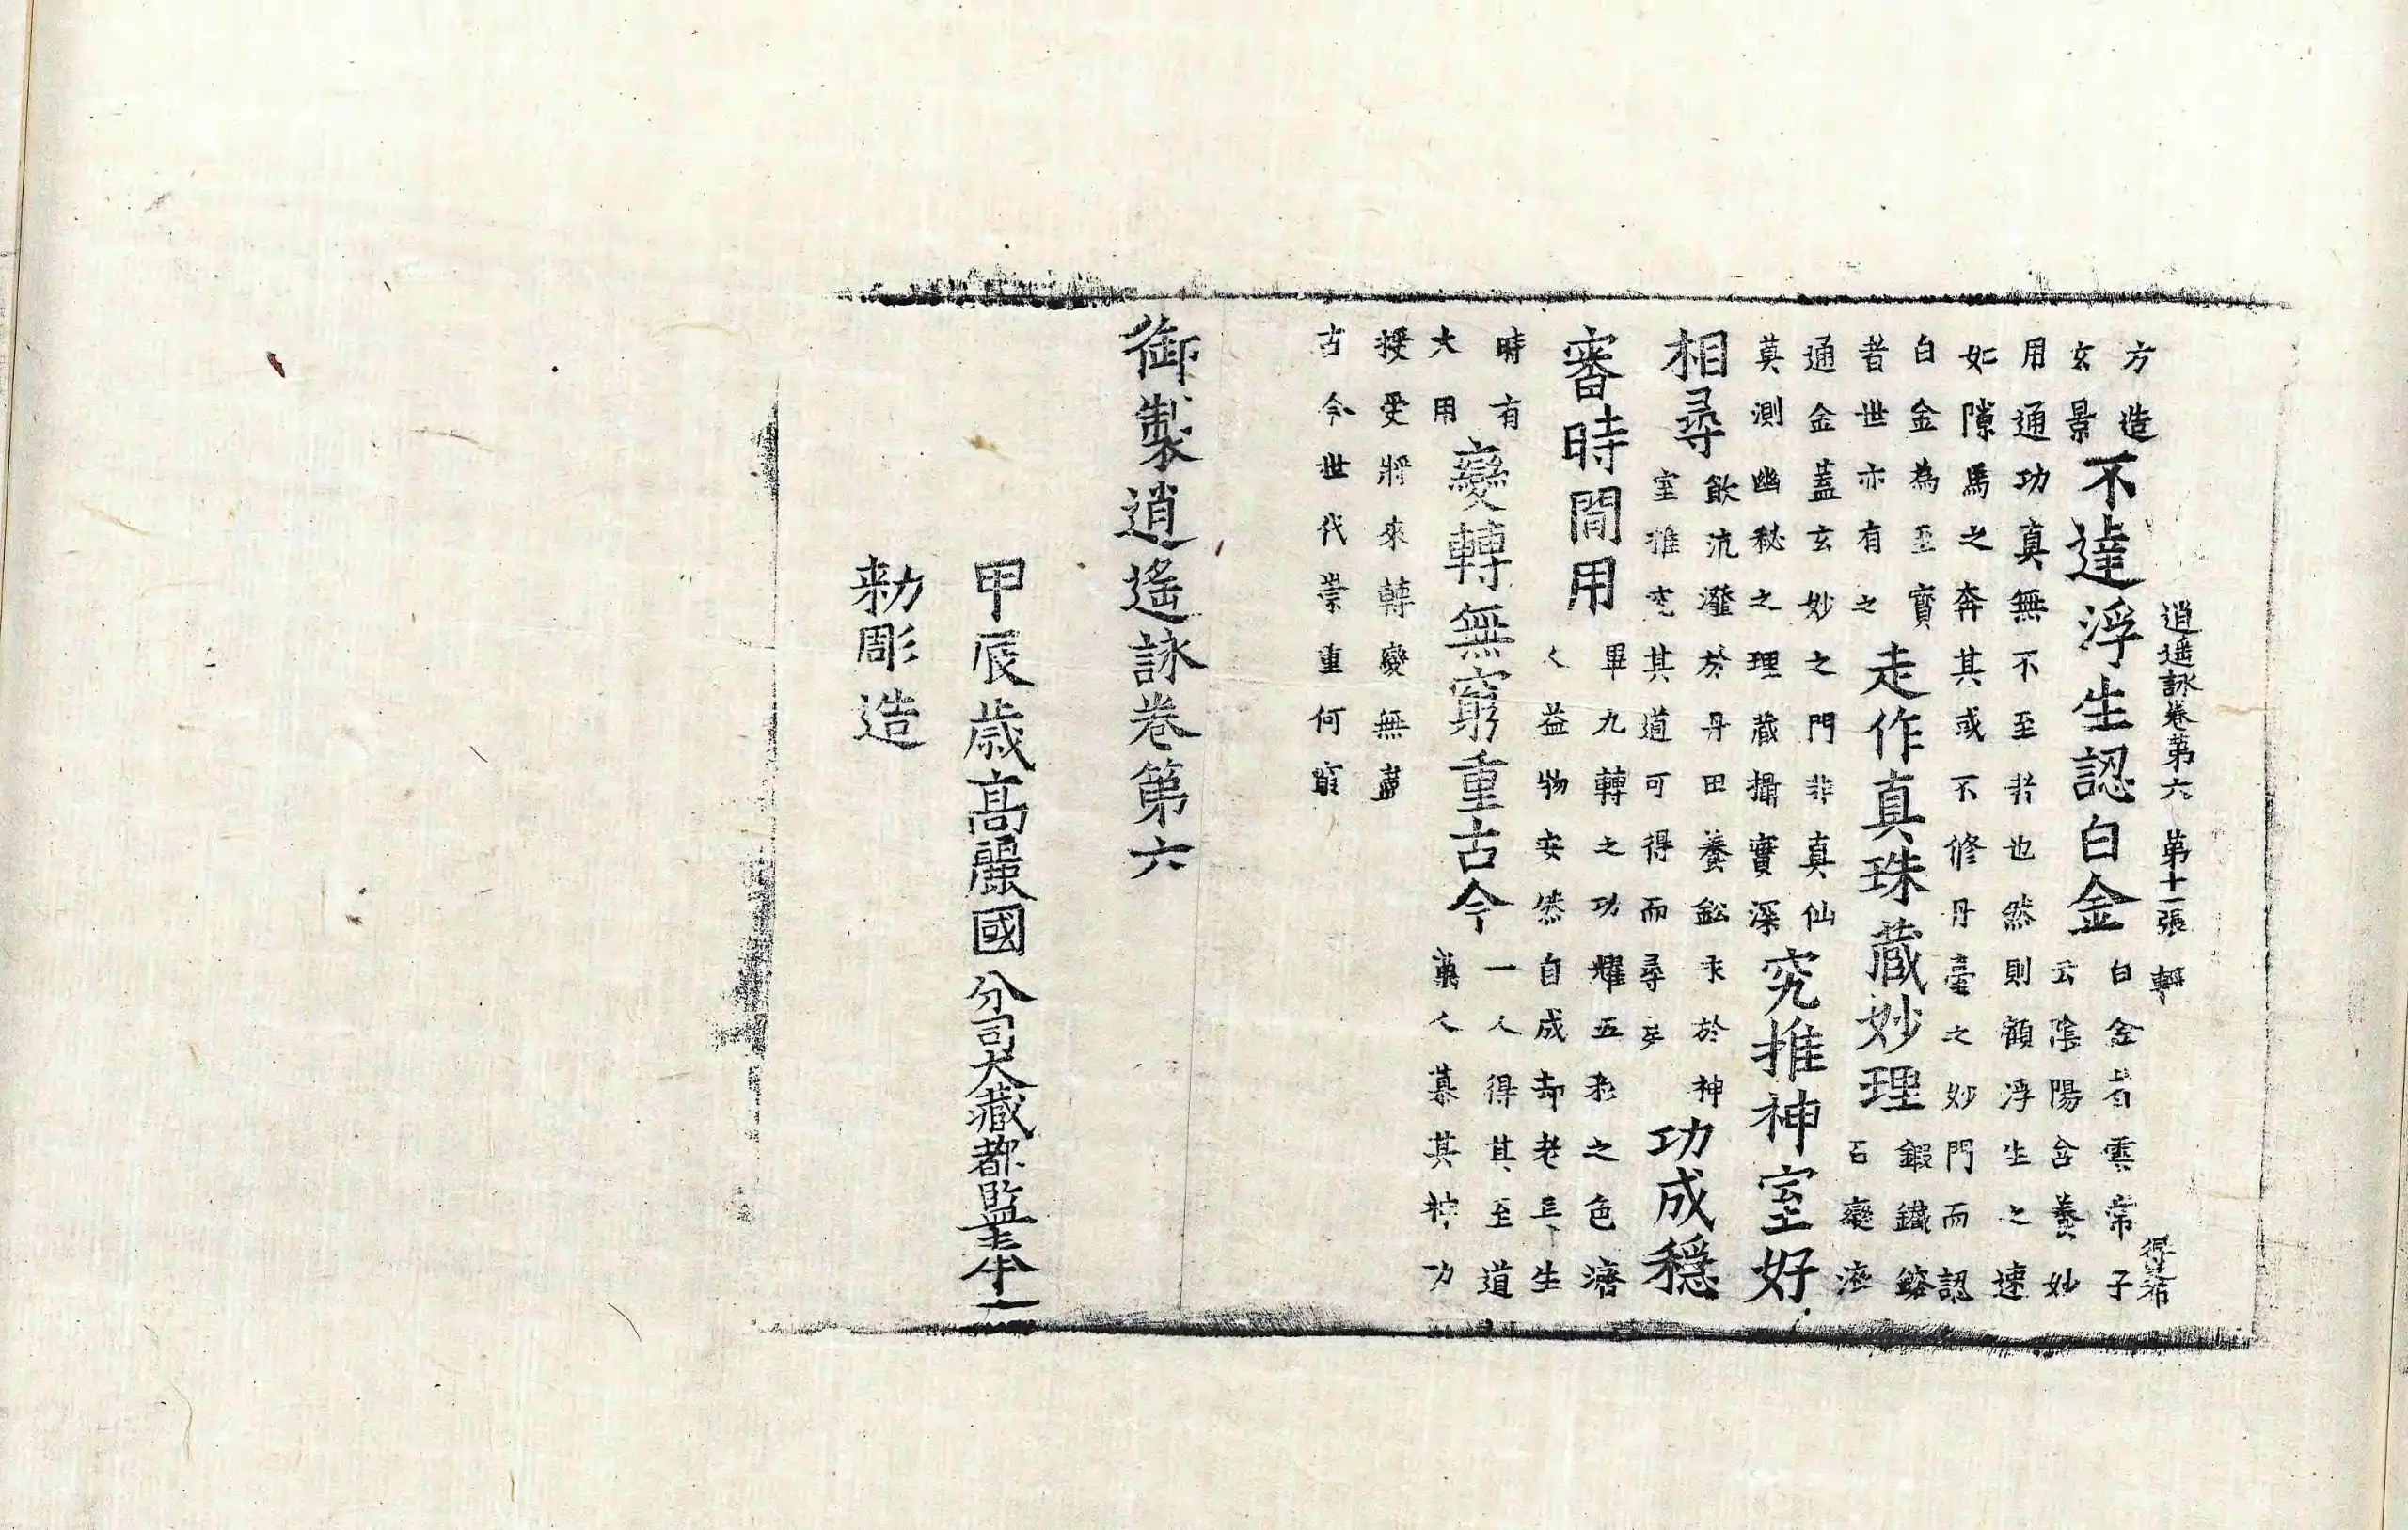 逍遥詠卷第六 第十一張 輕
方造
玄景
不達浮生認白金
白金者雲常子
云陰陽含養妙
用通功真無不至者也然則顧浮生之速
如隙馬之奔其或不修丹臺之妙門而認
白金為至寶
者世亦有之
走作真珠藏妙理
鍜鐵鎔
石變流
通金蓋玄妙之門非真仙
莫測幽秘之理藏攝實深
究推神室好
相尋
飲沆瀣於丹田養鈆汞於神
室推究其道可得而尋乎
功成穩
審時閒用
畢九轉之功耀五彩之色濟
人益物安然自成却老長生
時有
大用
變轉無窮重古今
一人得其至道
萬人慕其神功
授受將來轉變無盡
古今世代崇重何窮
御製逍遙詠卷第六
甲辰歲高麗國分司大藏都監奉
勑彫造